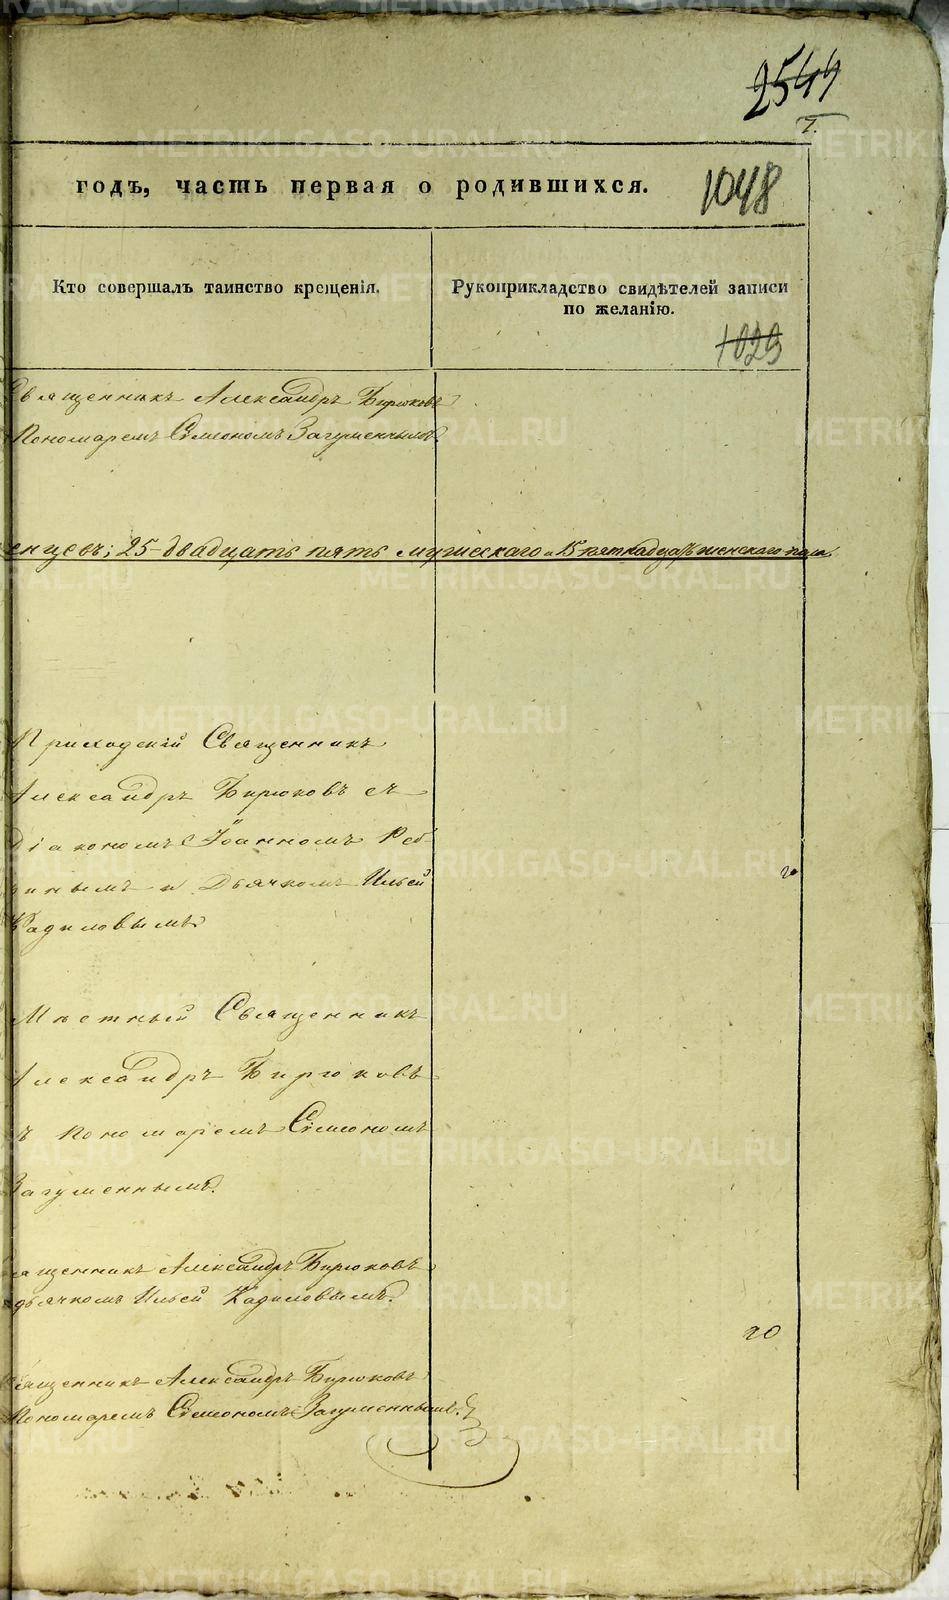 2544
годъ, часть первая о родившихся.
1048
Кто совершалъ таинство крещенія.
Рукоприкладство свидѣтелей записи
по желанію.
1029
Священникъ Александръ Бирюковъ
Пономаремъ Симеономъ Загуменнымъ.
енцевъ; 25 двадцать пять мужескаго и 15 пятнадцать женскаго пола.
Приходскій Священникъ
Александръ Бирюковъ съ
Діакономъ Іоанномъ Реб-
инымъ и Дьячкомъ Ильей
Кадиловымъ
20
Мѣстный Священникъ
Александръ Бирюковъ
съ пономаремъ Симеономъ
Загуменнымъ.
Священникъ Александръ Бирюковъ
дьячкомъ Ильей Кадиловымъ.
20
Священникъ Александръ Бирюковъ
Пономаремъ Симеономъ Загуменнымъ.
METRIKI.GASO-URAL.RU